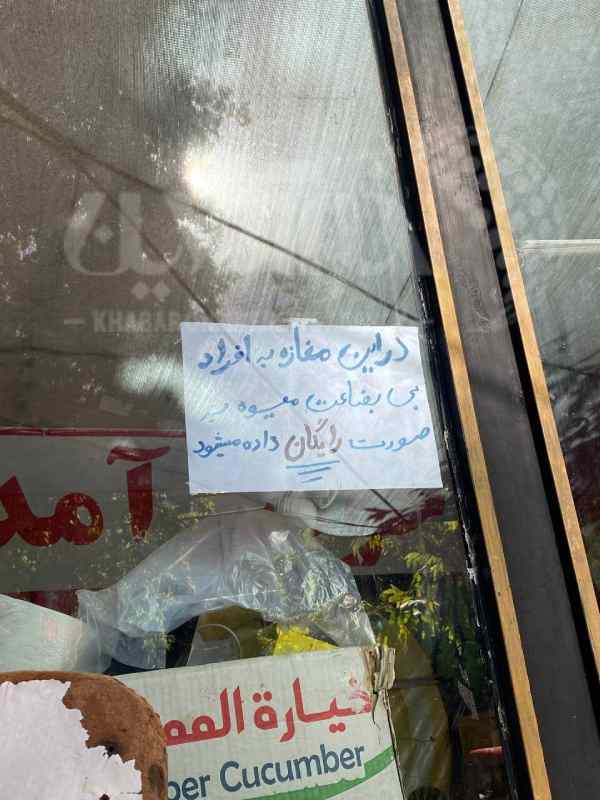 KHABAR
در این مغازه به افراد
بی بضاعت میوه به
صورت رایگان داده میشود
آمد
خيارة المم
per Cucumber